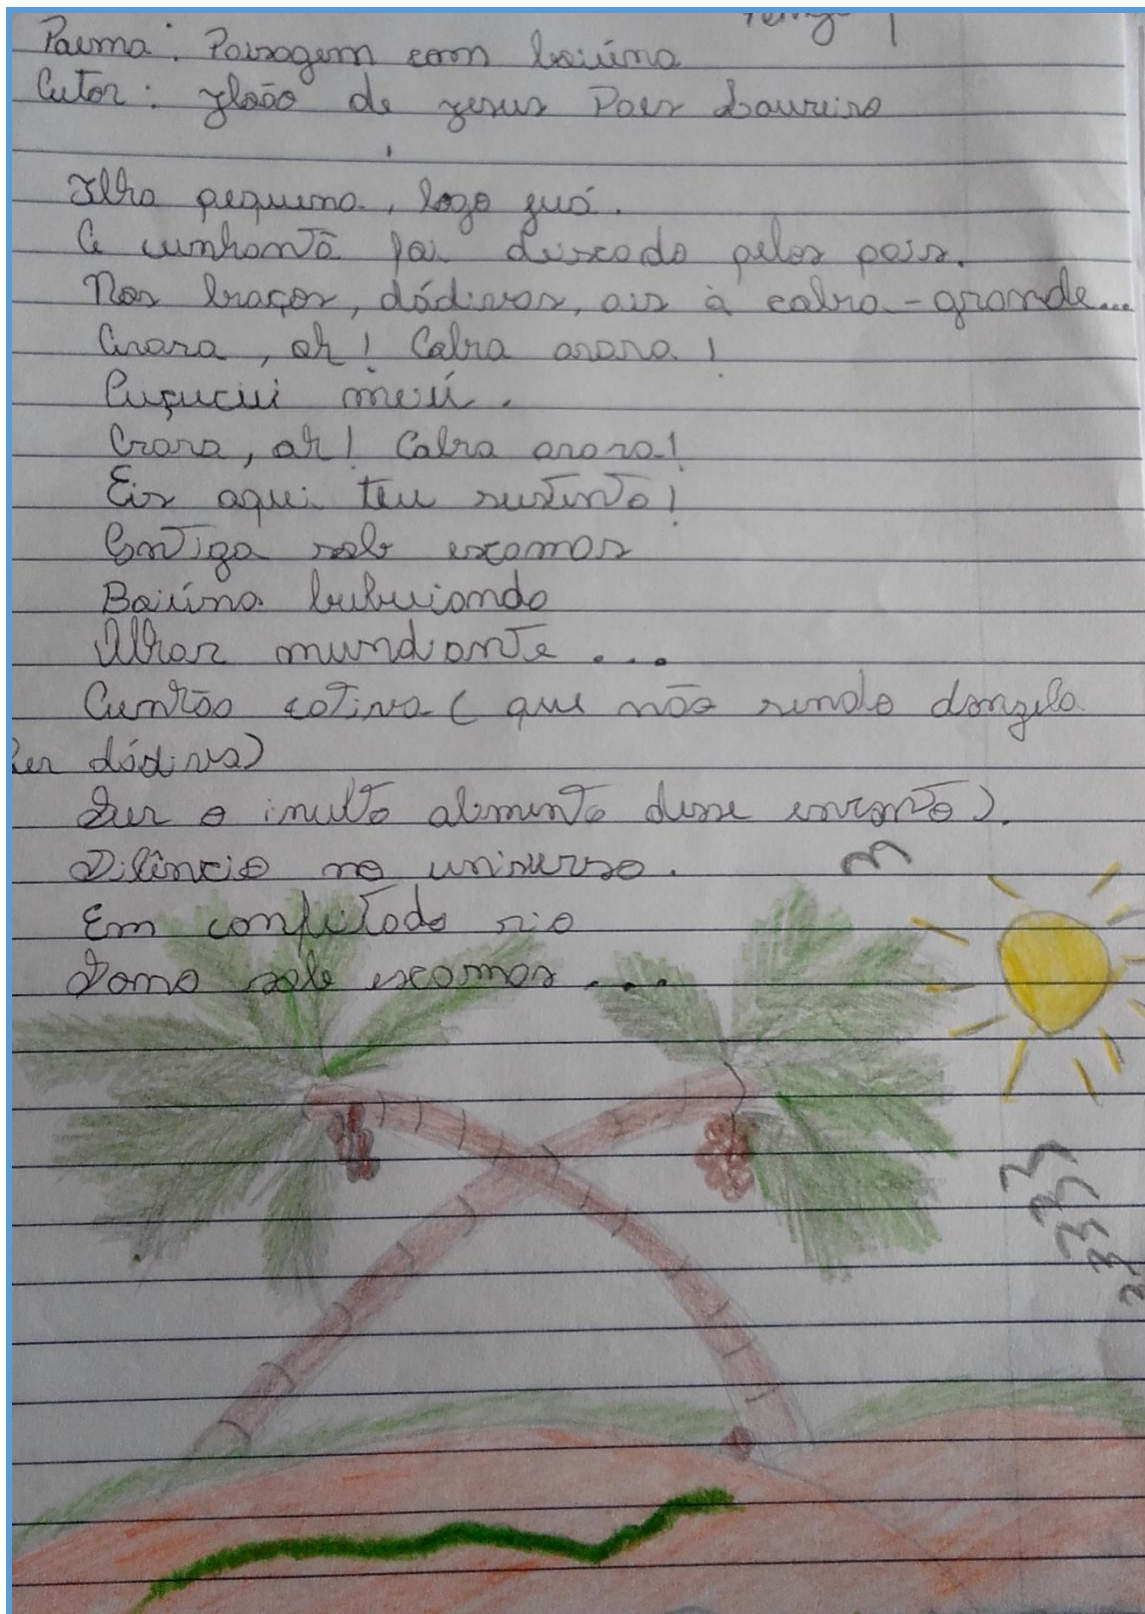 Poema: Paisagem com boiúna
Autor: João de Jesus Paes Loureiro
Ilha pequena, lago guá.
A cunhantã foi deixada pelos pais.
Nos braços, dádivas, ais à cobra-grande...
Arara, ah! Cobra arara!
Cuçucui meú.
Arara, ah! Cobra arara!
Eis aqui teu sustento!
Antiga sob escamas
Boiúna bubuiando
Olhar mundiante...
Cunhão cativa (que não sendo donzela
ser dádiva)
Ser o inulto alimento desse encanto).
Silêncio no universo.
Em confeitado rio
Dorso sob escamas...